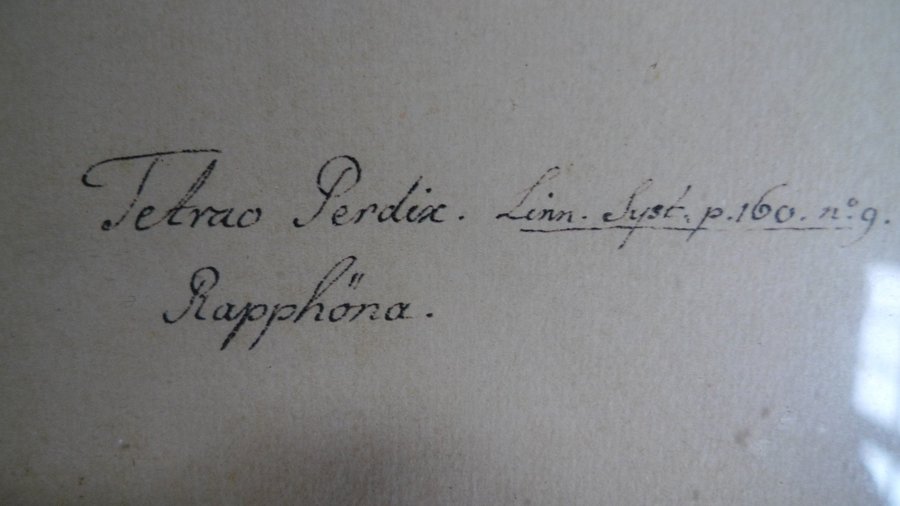 Tetrao Perdix. Linn. Syst. p. 160. nº 9.
Rapphöna.